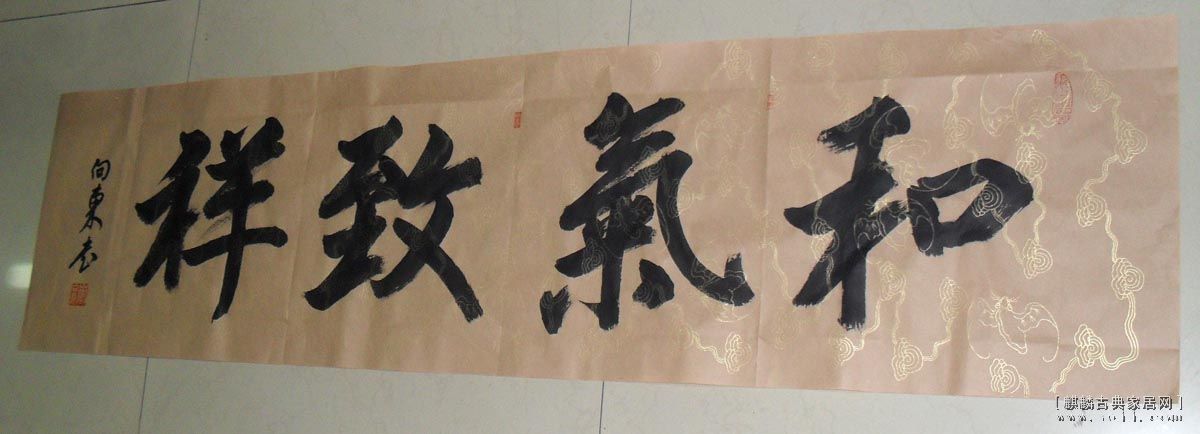 和氣致祥
向東书
[麒麟古典家居网]